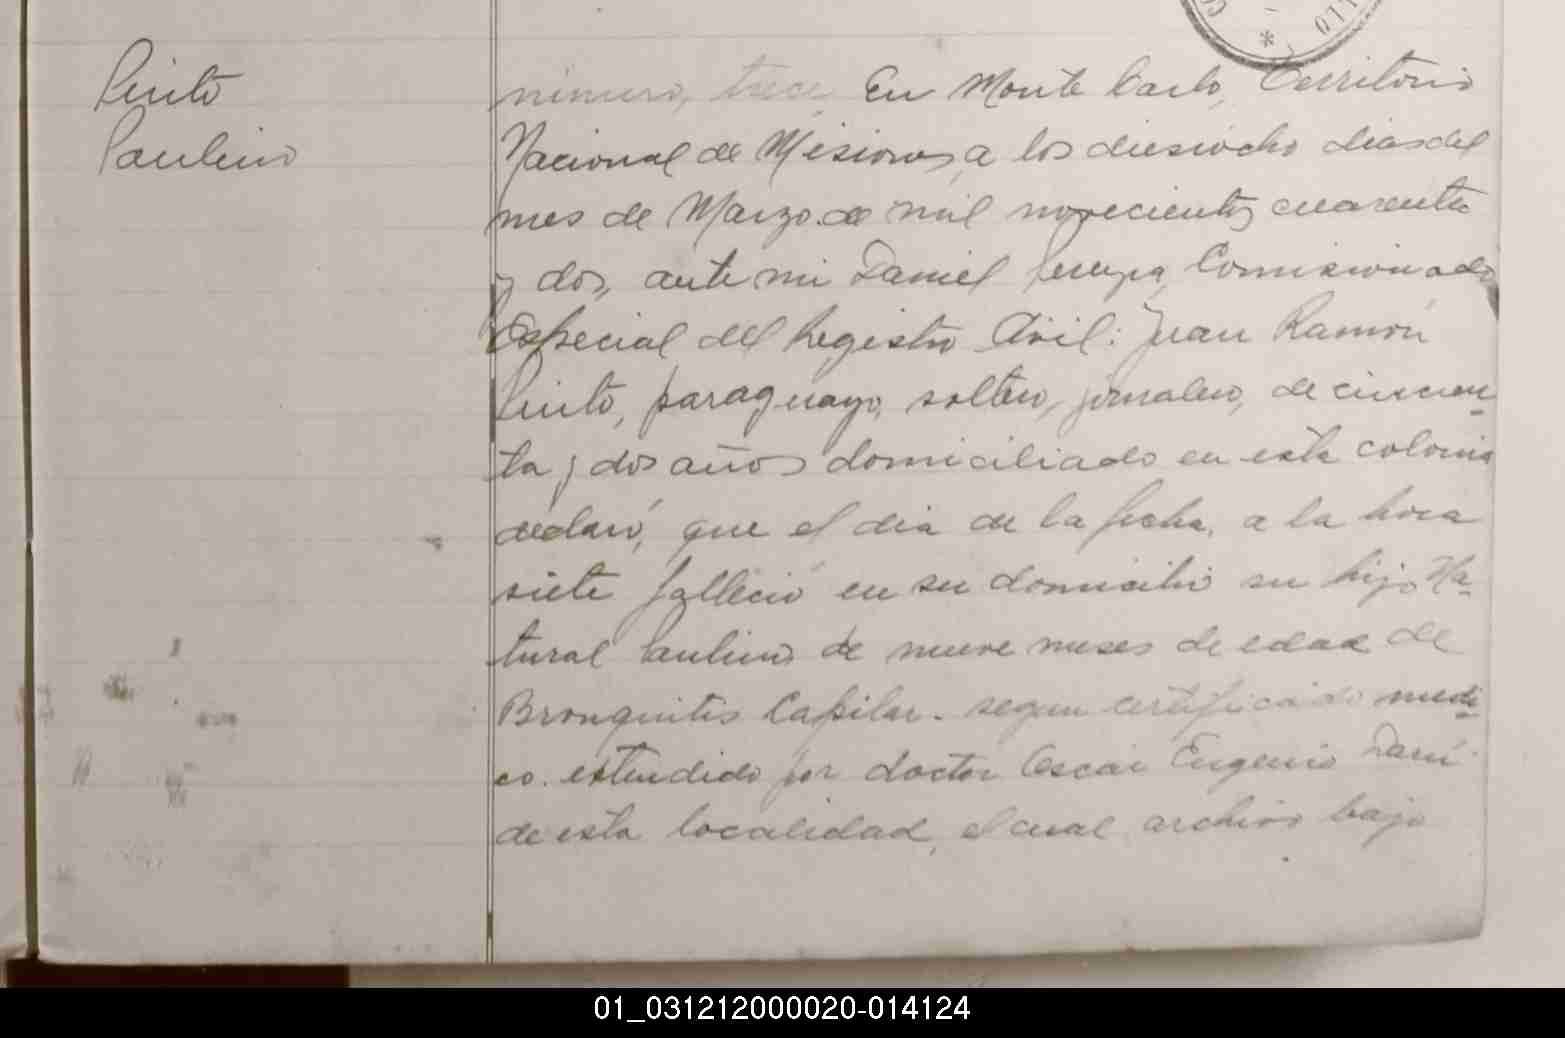 Pinto
Paulino
número, trece En Monte Carlo, Territorio
Nacional de Misiones, a los diesiocho dias del
mes de Marzo de mil novecientos cuarenta
y dos, ante mi Daniel Comisionado
Especial del Registro Civil: Juan Ramón
Pinto, paraguayo, soltero, jornalero, de cincuen-
ta y dos años domiciliado en esta colonia
declaró, que el dia de la fecha, a la hora
siete falleció en su domicilio su hijo Na-
tural Paulino de nueve meses de edad de
Bronquitis Capilar. segun certificado medi-
co. extendido por doctor Oscar Eugenio
de esta localidad, el cual archivo bajo
01_031212000020-014124